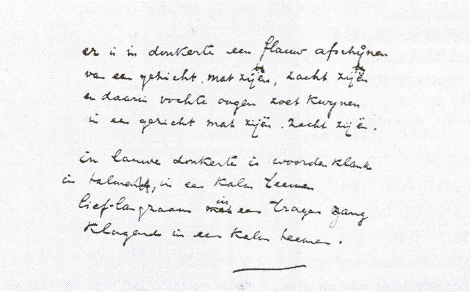 er is in donkerte een flauw afschijnen
van een gezicht, mat zijïn, zacht zijïn
en daarin vochte oogen zoet kwijnen
in een gezicht mat zijïn. zacht zijïn.
in lauwe donkerte is woorde klank
in talmen, in een kalm teemen
lief-langzaam in een tragen zang
klagend in een kalm teemen.